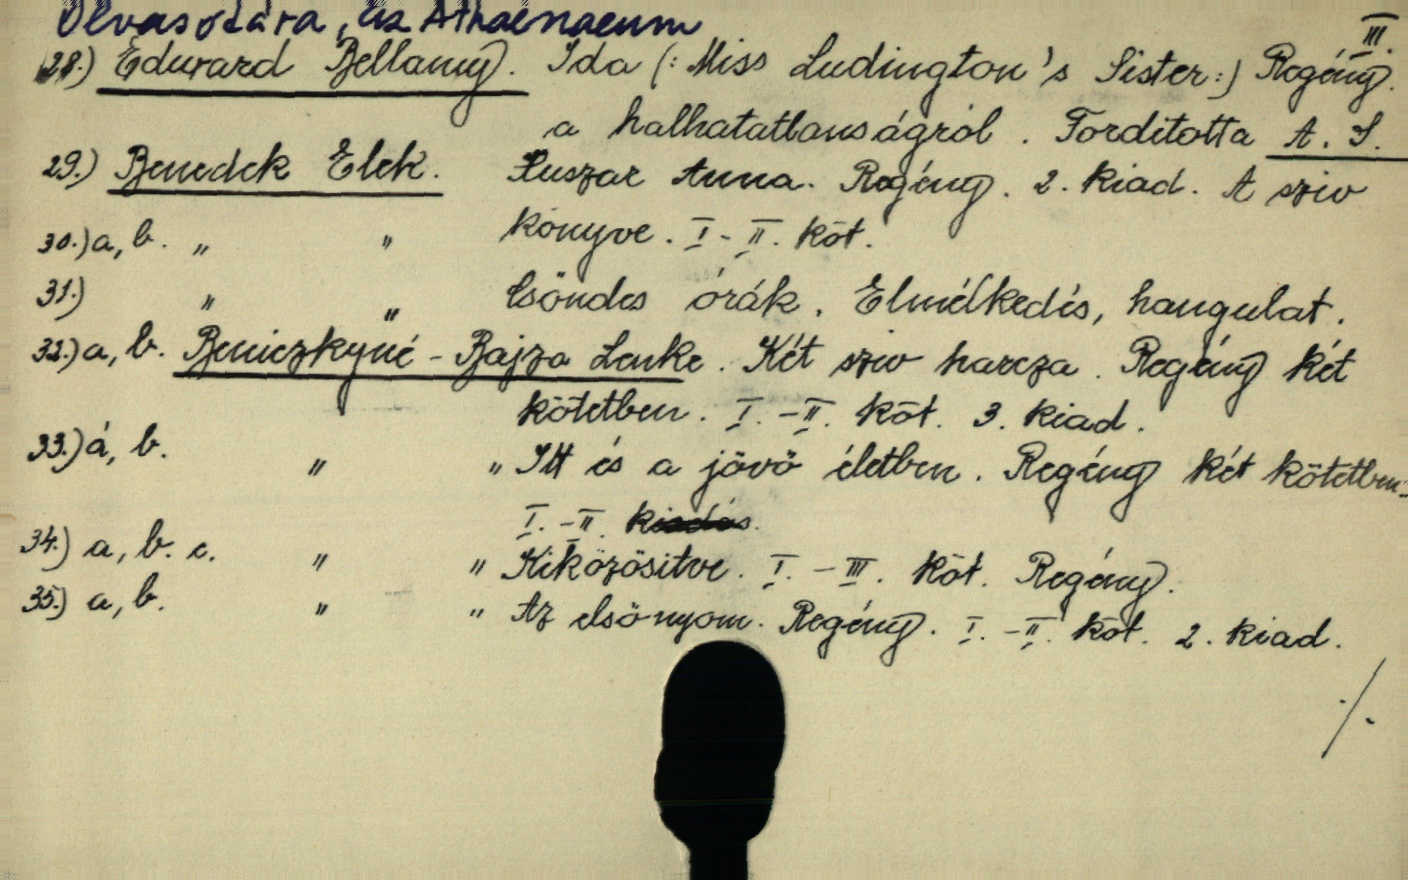 Olvasótára, Az Athaenaeum
III.
28.) Edward Bellamy. Ida (: Miss Ludington's Sister:) Regény.
a halhatatlanságról. Forditotta A. S.
29.) Benedek Elek. Huszár Anna. Regény. 2. kiad. A sziv
30.) a, b. " " könyve. I-II. köt.
31.) " " Csöndes órák. Elmélkedés, hangulat.
32.) a, b. Beniczkyné-Bajza Lenke. Két sziv harcza. Regény két
kötetben. I.-II. köt. 3. kiad.
33.) á, b. " " Itt és a jövö életben. Regény két kötetben.
I.-II. kiadás.
34.) a, b. c. " " Kiközösitve. I.-III. köt. Regény.
35.) a, b. " " Az elsö nyom. Regény. I.-II. köt. 2. kiad.
./.